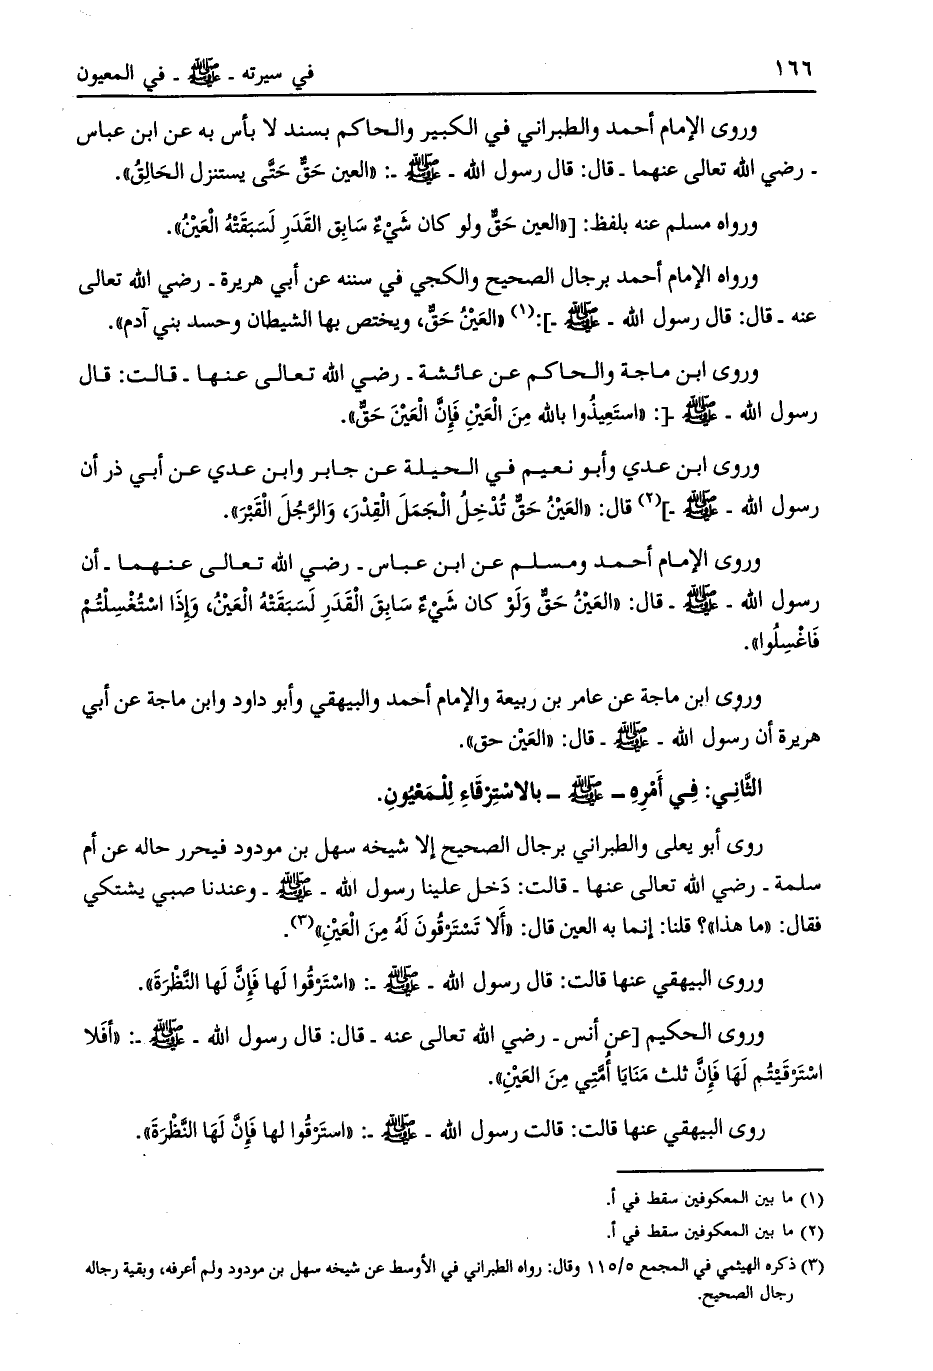 ١٦٦
في سيرته ـ ﷺ ـ في المعيون
وروى الإمام أحمد والطبراني في الكبير والحاكم بسند لا بأس به عن ابن عباس
ـ رضي الله تعالى عنهما ـ قال: قال رسول الله ـ ﷺ ـ: «العين حَقٌّ حَتَّى يستنزل الحَالِقُ».
ورواه مسلم عنه بلفظ: [«العين حَقٌّ ولو كان شَيْءٌ سَابِق القَدَرِ لَسَبَقَتْهُ الْعَيْنُ».
ورواه الإمام أحمد برجال الصحيح والكجي في سننه عن أبي هريرة ـ رضي الله تعالى
عنه ـ قال: قال رسول الله ـ ﷺ ـ]:(١) «العَيْنُ حَقٌّ، ويختص بها الشيطان وحسد بني آدم».
وروى ابن ماجة والحاكم عن عائشة ـ رضي الله تعالى عنها ـ قالت: قال
رسول الله ـ ﷺ ـ[: «استَعِيذُوا بالله مِنَ الْعَيْنِ فَإِنَّ الْعَيْنَ حَقٌّ».
وروى ابن عدي وأبو نعيم في الحيلة عن جابر وابن عدي عن أبي ذر أن
رسول الله ـ ﷺ ـ](٢) قال: «العَيْنُ حَقٌّ تُدْخِلُ الْجَمَلَ الْقِدْرَ، وَالرَّجُلَ الْقَبْرَ».
وروى الإمام أحمد ومسلم عن ابن عباس ـ رضي الله تعالى عنهما ـ أن
رسول الله ـ ﷺ ـ قال: «العَيْنُ حَقٌّ وَلَوْ كان شَيْءٌ سَابِقَ الْقَدَرِ لَسَبَقَتْهُ الْعَيْنُ، وَإِذَا اسْتُغْسِلْتُمْ
فَاغْسِلُوا».
وروى ابن ماجة عن عامر بن ربيعة والإمام أحمد والبيهقي وأبو داود وابن ماجة عن أبي
هريرة أن رسول الله ـ ﷺ ـ قال: «العَيْن حق».
الثَّانِي: فِي أَمْرِهِ ـ ﷺ ـ بالاسْتِرْقَاءِ لِلْمَعْيُونِ.
روى أبو يعلى والطبراني برجال الصحيح إلا شيخه سهل بن مودود فيحرر حاله عن أم
سلمة ـ رضي الله تعالى عنها ـ قالت: دَخل علينا رسول الله ـ ﷺ ـ وعندنا صبي يشتكي
فقال: «ما هذا»؟ قلنا: إنما به العين قال: «أَلا تَسْتَرْقُونَ لَهُ مِنَ الْعَيْنِ»(٣).
وروى البيهقي عنها قالت: قال رسول الله ـ ﷺ ـ: «اسْتَرْقُوا لَها فَإِنَّ لَها النَّظْرَةَ».
وروى الحكيم [عن أنس ـ رضي الله تعالى عنه ـ قال: قال رسول الله ـ ﷺ ـ: «أَفَلا
اسْتَرْقَيْتُم لَهَا فَإِنَّ ثلث مَنَايَا أُمَّتِي مِنَ العَيْنِ».
روى البيهقي عنها قالت: قالت رسول الله ـ ﷺ ـ: «استَرْقُوا لها فَإِنَّ لَهَا النَّظْرَةَ».
(١) ما بين المعكوفين سقط في أ.
(٢) ما بين المعكوفين سقط في أ.
(٣) ذكره الهيثمي في المجمع ١١٥/٥ وقال: رواه الطبراني في الأوسط عن شيخه سهل بن مودود ولم أعرفه، وبقية رجاله
رجال الصحيح.